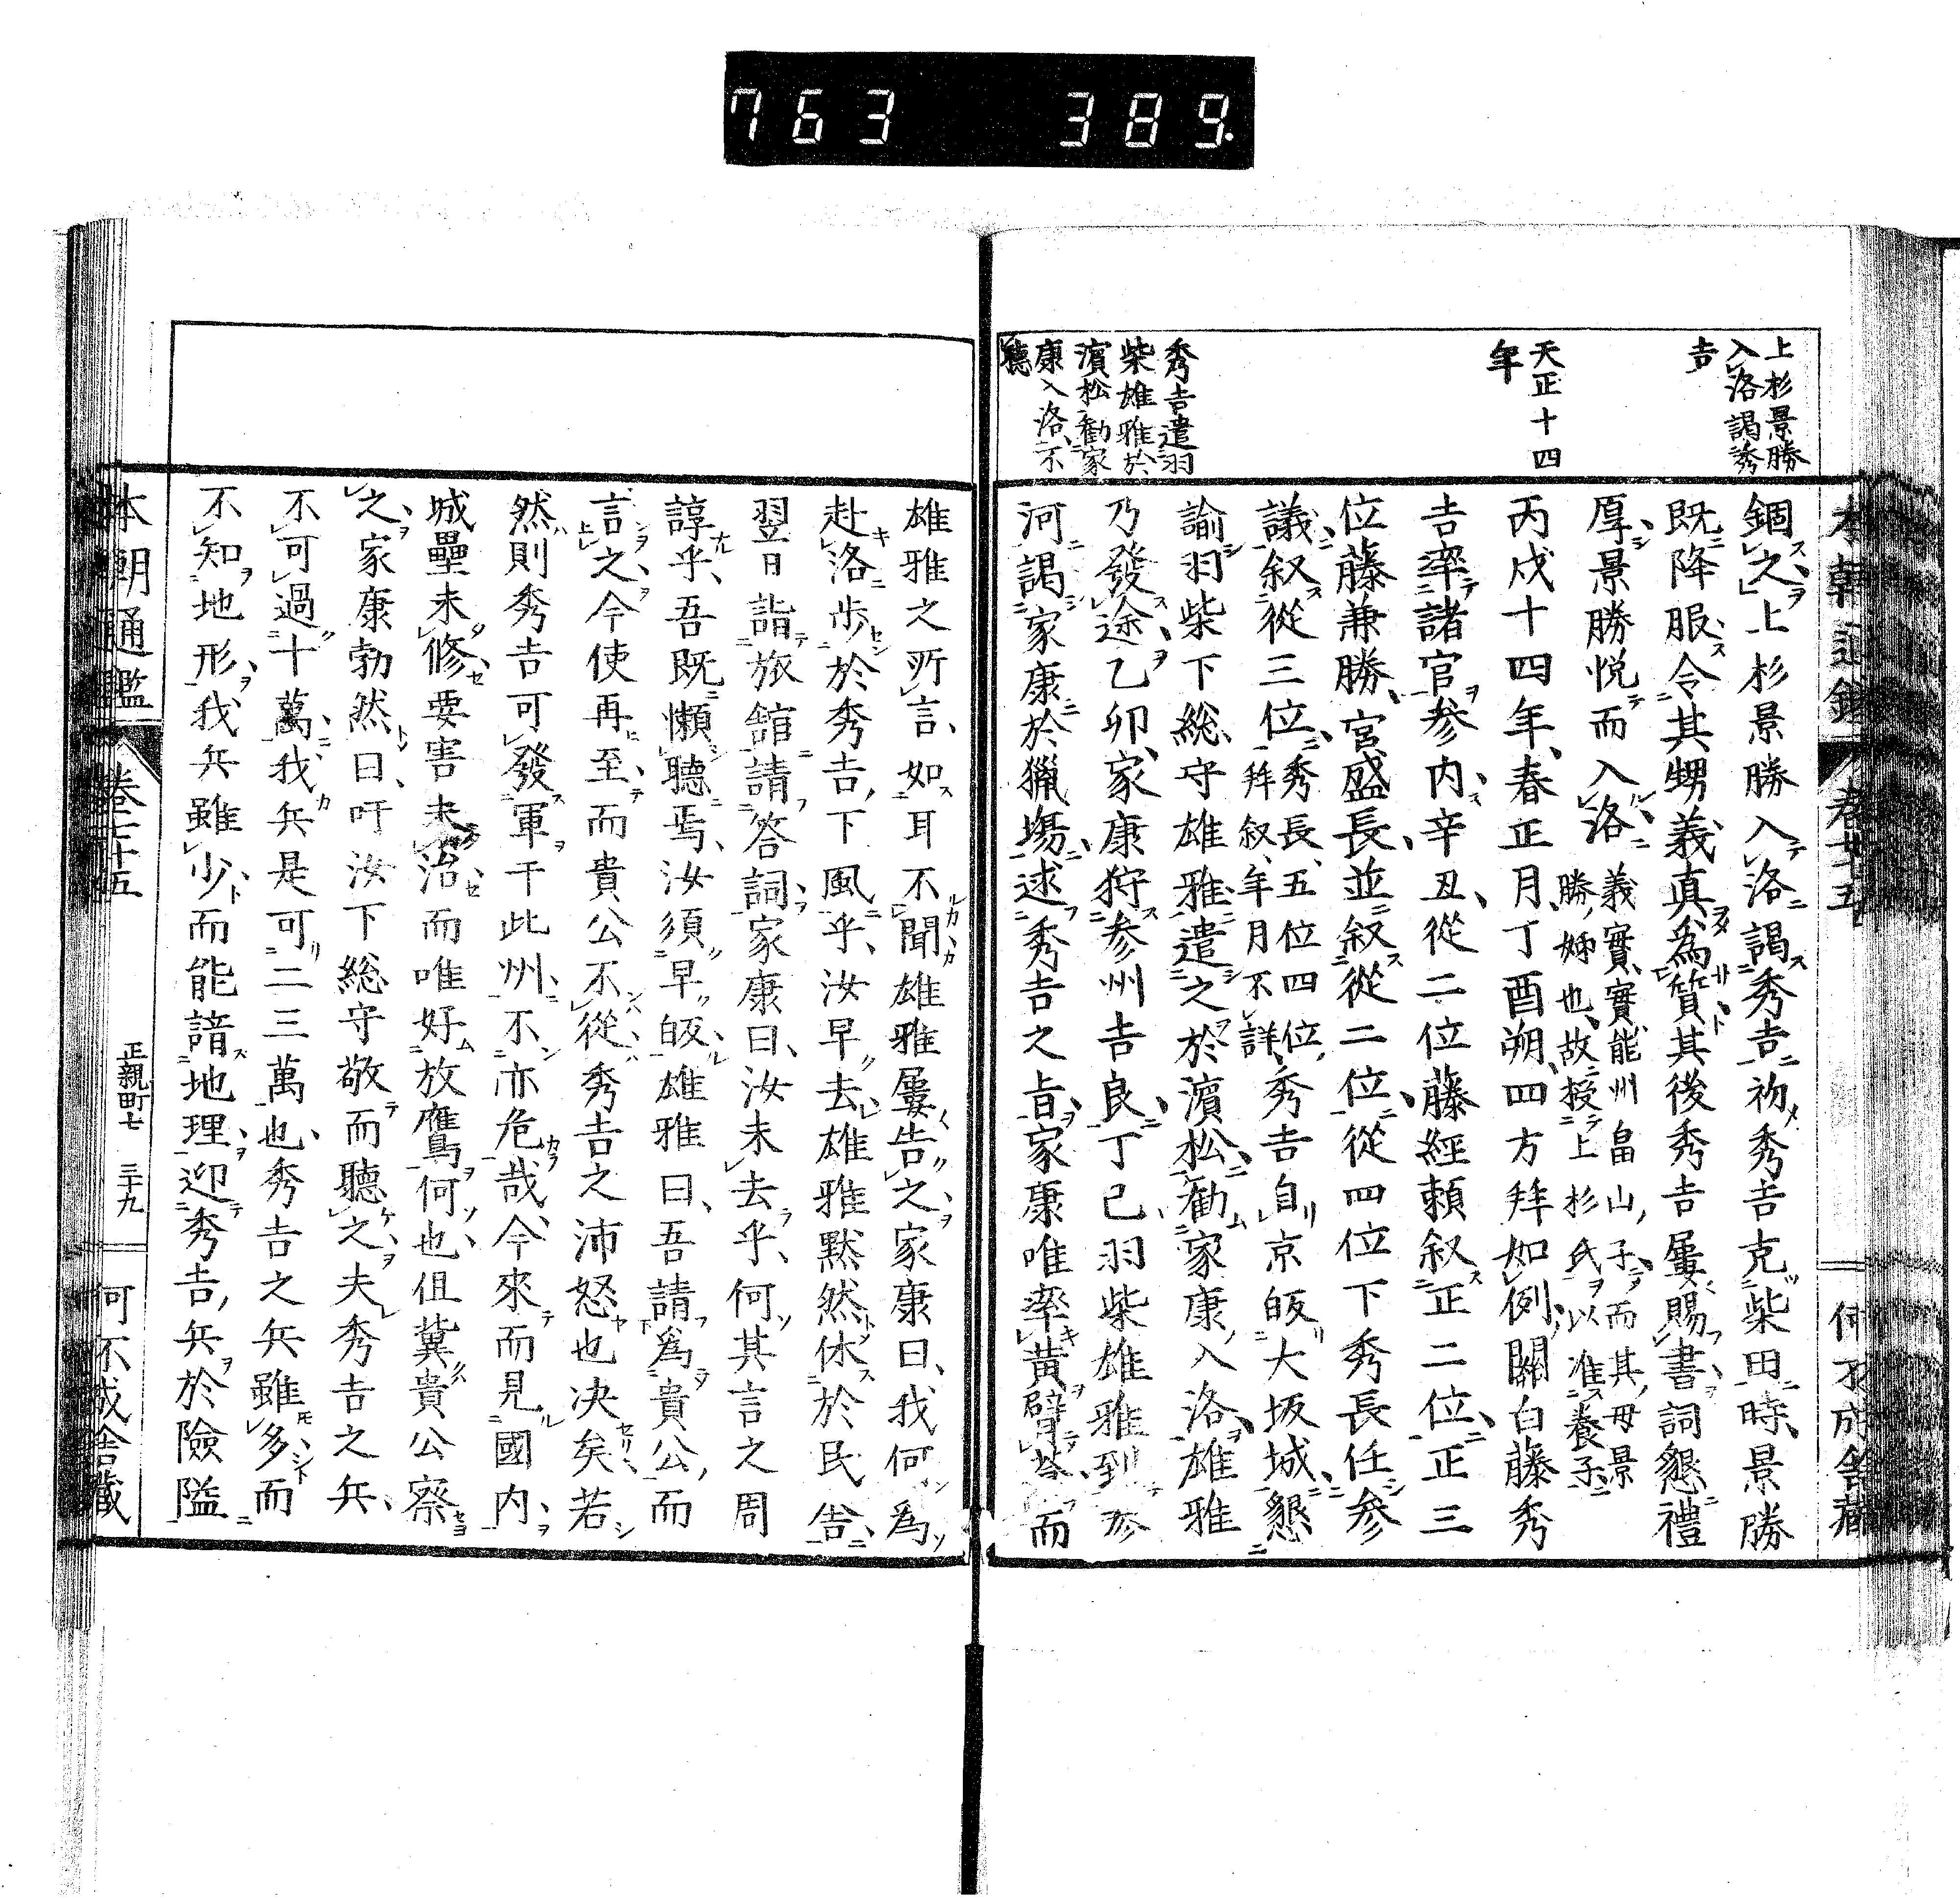 763 389.
上杉景勝
入洛謁秀
吉
天正十四
年
秀吉遣羽
柴雄雅於
濱松勸家
康入洛不
聽
錮之上杉景勝入洛謁秀吉初秀吉克柴田時景勝
既降服令其甥義真為質其後秀吉屢賜書詞懇禮
厚景勝悦而入洛義實實能州畠山子而其母景
勝姊也故授上杉氏以准養子
丙戌十四年春正月丁酉朔四方拜如例關白藤秀
吉率諸官參内辛丑從二位藤經頼叙正二位正三
位藤兼勝宮盛長並叙從二位從四位下秀長任參
議叙從三位秀長五位四位
拜叙年月不詳秀吉自京皈大坂城懇
諭羽柴下総守雄雅遣之於濱松勸家康入洛雄雅
乃發途乙卯家康狩参州吉良丁巳羽柴雄雅到参
河謁家康於獵場述秀吉之旨家康唯率黄臂蒼而
雄雅之所言如耳不聞雄雅屢告之家康曰我何為
赴洛步於秀吉下風乎汝早去雄雅黙然休於民舎
翌日詣旅舘請答詞家康曰汝未去乎何其言之周
諄乎吾既懶聽焉汝須早皈雄雅曰吾請為貴公而
言之今使再至而貴公不從秀吉之沛怒也决矣若
然則秀吉可發軍于此州不亦危哉今來而見國内
城壘未修要害未治而唯好放鷹何也伹冀貴公察
之家康勃然曰吁汝下総守敬而聽之夫秀吉之兵
不可過十萬我兵是可二三萬也秀吉之兵雖多而
不知地形我兵雖少而能諳地理迎秀吉兵於險隘
本朝通鑑 卷七十五 正親町七 三十九 何不成舎藏